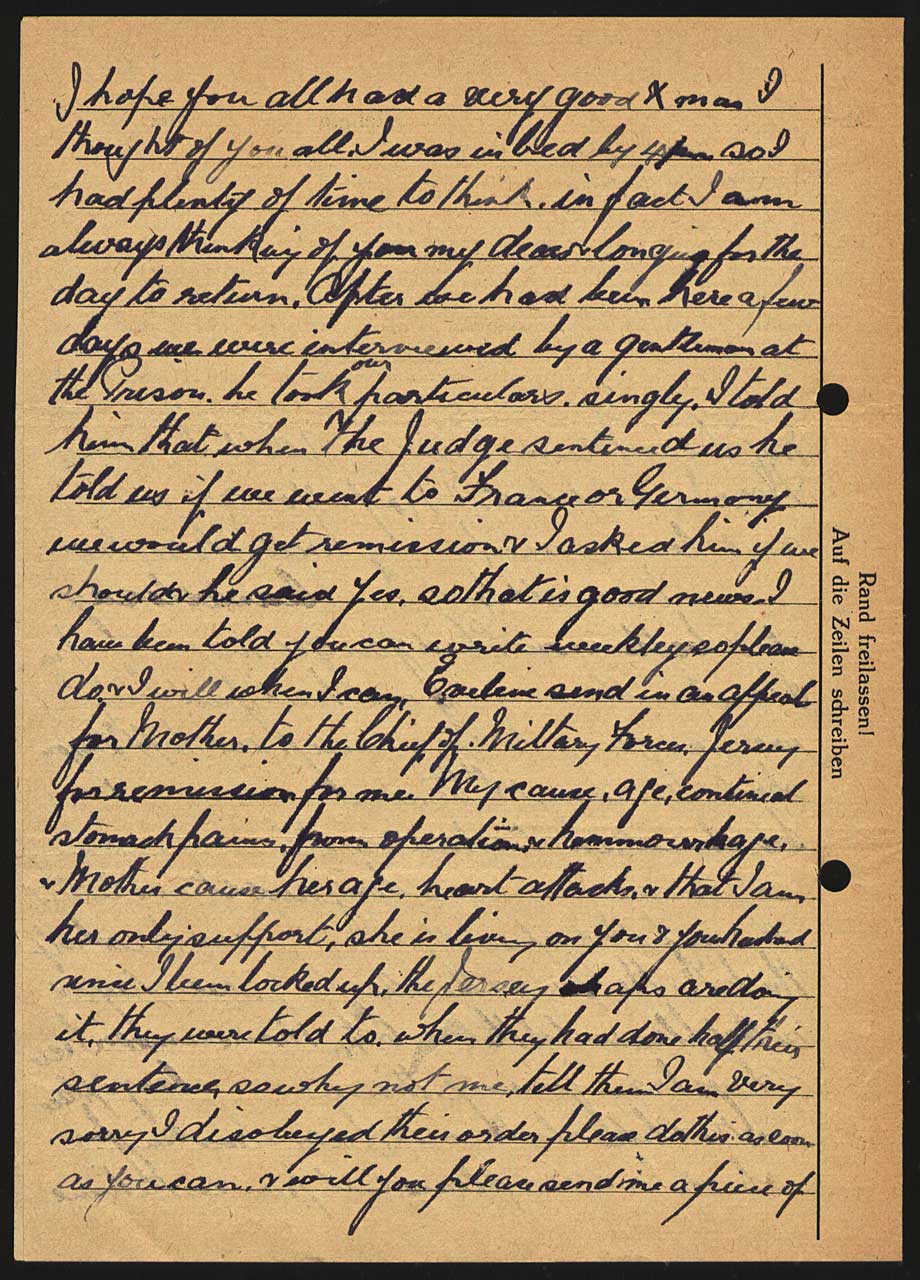 I hope you all had a very good Xmas I
thought of you all. I was in bed by 4pm so I
had plenty of time to think. in fact I am
always thinking of you my dears & longing for the
day to return. After we had been here a few
days we were interviewed by a gentleman at
the Prison. he took our particulars. singly. I told
him that when The Judge sentenced us he
told us if we went to France or Germany
we would get remission & I asked him if we
should & he said Yes, so that is good news. I
have been told you can write weekly so please
do & I will when I can, Eveline send in an appeal
for Mother, to the Chief of. Military Forces. Jersey
for remission for me. My cause, age, continual
stomach pains, from operation & hemmorrhage,
& Mother cause her age, heart attacks, & that I am
her only support, she is living on you & your husband
since I been locked up, the Jersey chaps are doing
it, they were told to. when they had done half their
sentence, so why not me, tell them I am very
sorry I disobeyed their order please do this as soon
as you can, & will you please send me a piece of
Rand freilassen!
Auf die Zeilen schreiben